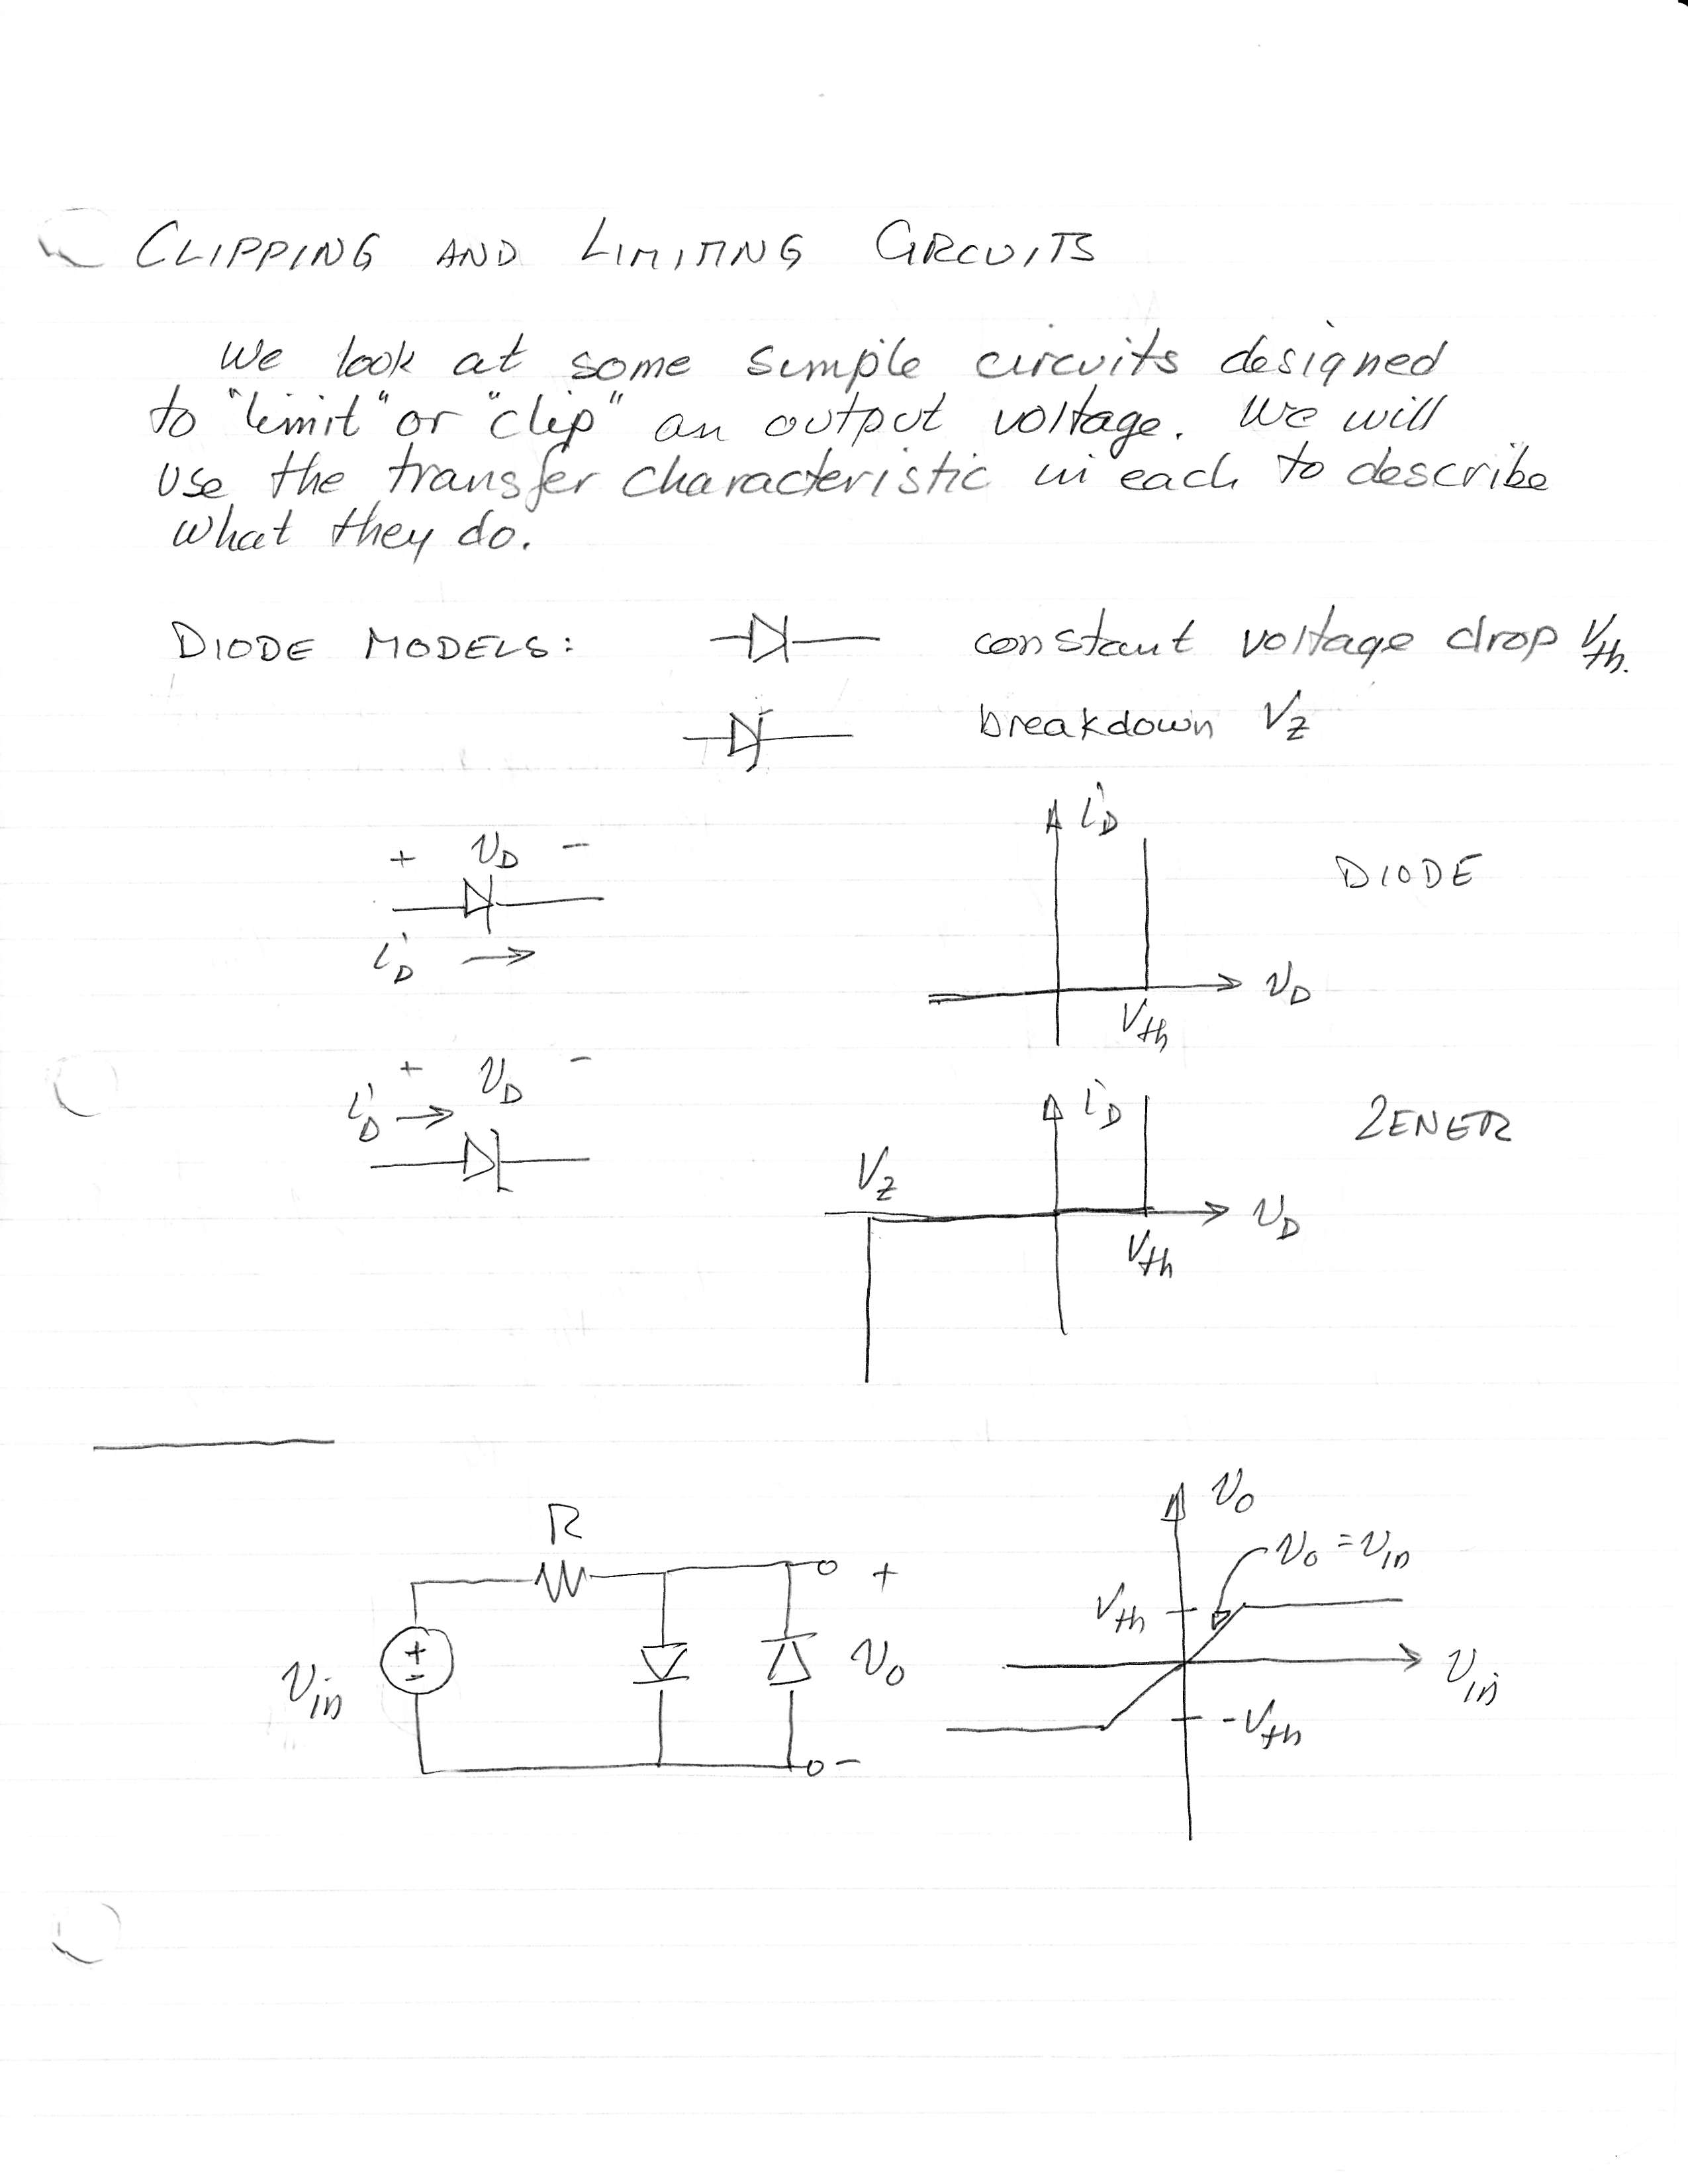 CLIPPING AND LIMITING CIRCUITS
We look at some simple circuits designed
to "limit" or "clip" an output voltage. We will
use the transfer characteristic in each to describe
what they do.
DIODE MODELS: constant voltage drop Vth.
breakdown VZ
iD
+ vD -
DIODE
iD
vD
Vth
+ vD -
iD
iD
ZENER
VZ
vD
Vth
R
vo
vo = vin
+
Vth
vin
+
-
vo
vin
-Vth
-